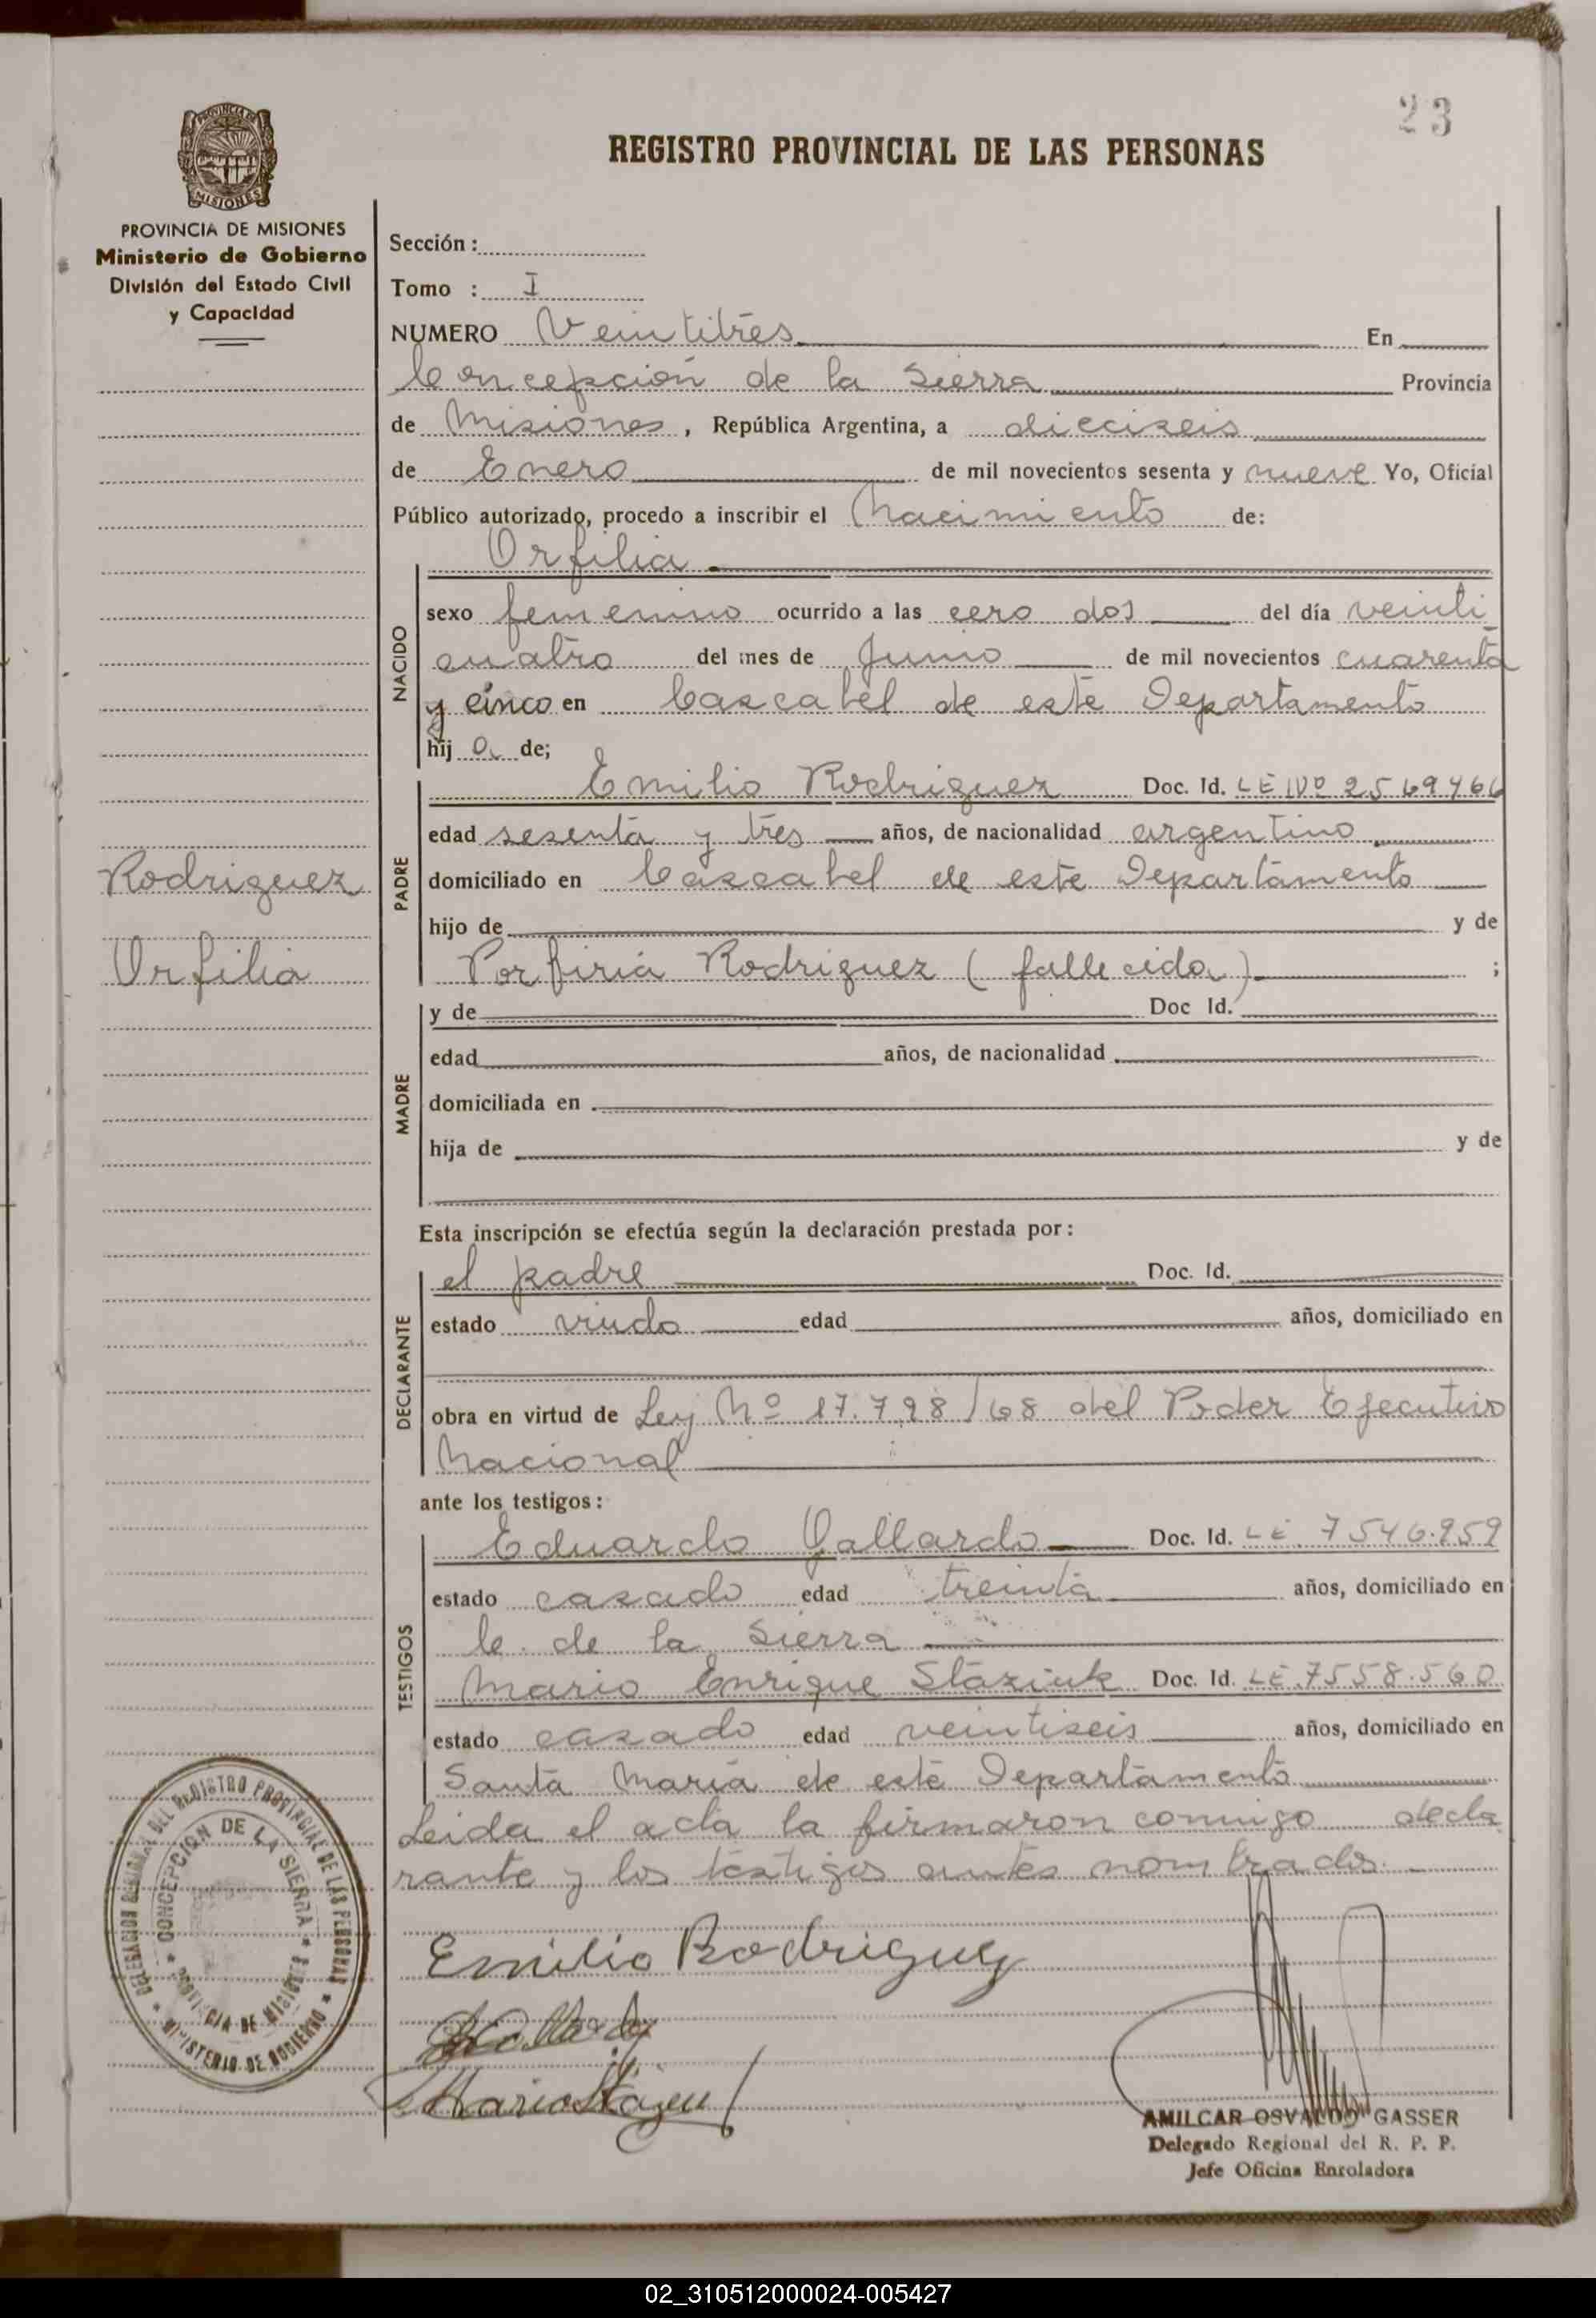 23
REGISTRO PROVINCIAL DE LAS PERSONAS
PROVINCIA DE MISIONES
Ministerio de Gobierno
División del Estado Civil
y Capacidad
Sección :
Tomo : I
NUMERO Veintitrés En
Concepción de la Sierra Provincia
de Misiones , República Argentina, a dieciseis
de Enero de mil novecientos sesenta y nueve Yo, Oficial
Público autorizado, procedo a inscribir el Nacimiento de:
Orfilia
NACIDO
sexo femenino ocurrido a las cero dos del día veinti
cuatro del mes de Junio de mil novecientos cuarenta
y cinco en Cascabel de este Departamento
hij a de;
PADRE
Emilio Rodriguez Doc. Id. LE Nº
edad sesenta y tres años, de nacionalidad argentino
domiciliado en Cascabel de este Departamento
hijo de y de
Porfiria Rodriguez (fallecida) ;
Rodriguez
Orfilia
MADRE
y de Doc Id.
edad años, de nacionalidad
domiciliada en
hija de y de
Esta inscripción se efectúa según la declaración prestada por :
DECLARANTE
el padre Doc. Id.
estado viudo edad años, domiciliado en
obra en virtud de Ley Nº 17.798/68 del Poder Ejecutivo
Nacional
ante los testigos :
TESTIGOS
Eduardo Gallardo Doc. Id. LE. 7546.959
estado casado edad treinta años, domiciliado en
C. de la Sierra
Mario Enrique Staziuk Doc. Id. LE. 7558.560
estado casado edad veintiseis años, domiciliado en
Santa María de este Departamento
Leida el acta la firmaron conmigo decla
rante y los testigos antes nombrados.
Emilio Rodriguez
DELEGACION REGIONAL DEL REGISTRO PROVINCIAL DE LAS PERSONAS
MINISTERIO DE GOBIERNO
CONCEPCION DE LA SIERRA
PROVINCIA DE MISIONES
AMILCAR OSVALDO GASSER
Delegado Regional del R. P. P.
Jefe Oficina Enroladora
02_310512000024-005427